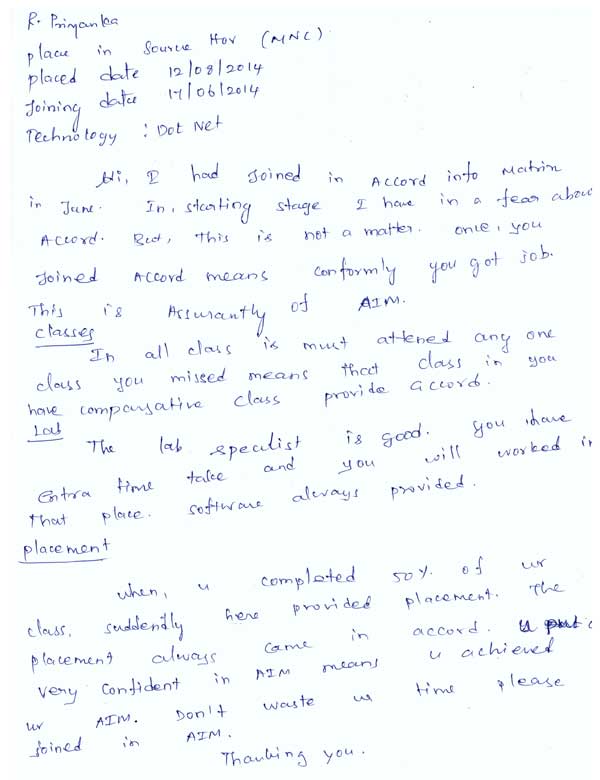 R. Priyanka
place in Source Hov (MNC)
placed date 12/08/2014
Joining date 17/06/2014
Technology : Dot Net
Hi, I had Joined in Accord info Matrix
in June. In, starting stage I have in a fear about
Accord. But, This is not a matter. once, you
Joined Accord means conformly you got job.
This is Assurantly of AIM.
Classes
In all class is must attened any one
class you missed means that class in you
have compensative class provide accord.
Lab
The lab specilist is good. you have
Extra time take and you will worked in
that place. software always provided.
placement
when, u completed 50% of ur
class, suddenily here provided placement. The
placement always came in accord. u put
very confident in AIM means u achieved
ur AIM. Don't waste ur time please
joined in AIM.
Thanking you.